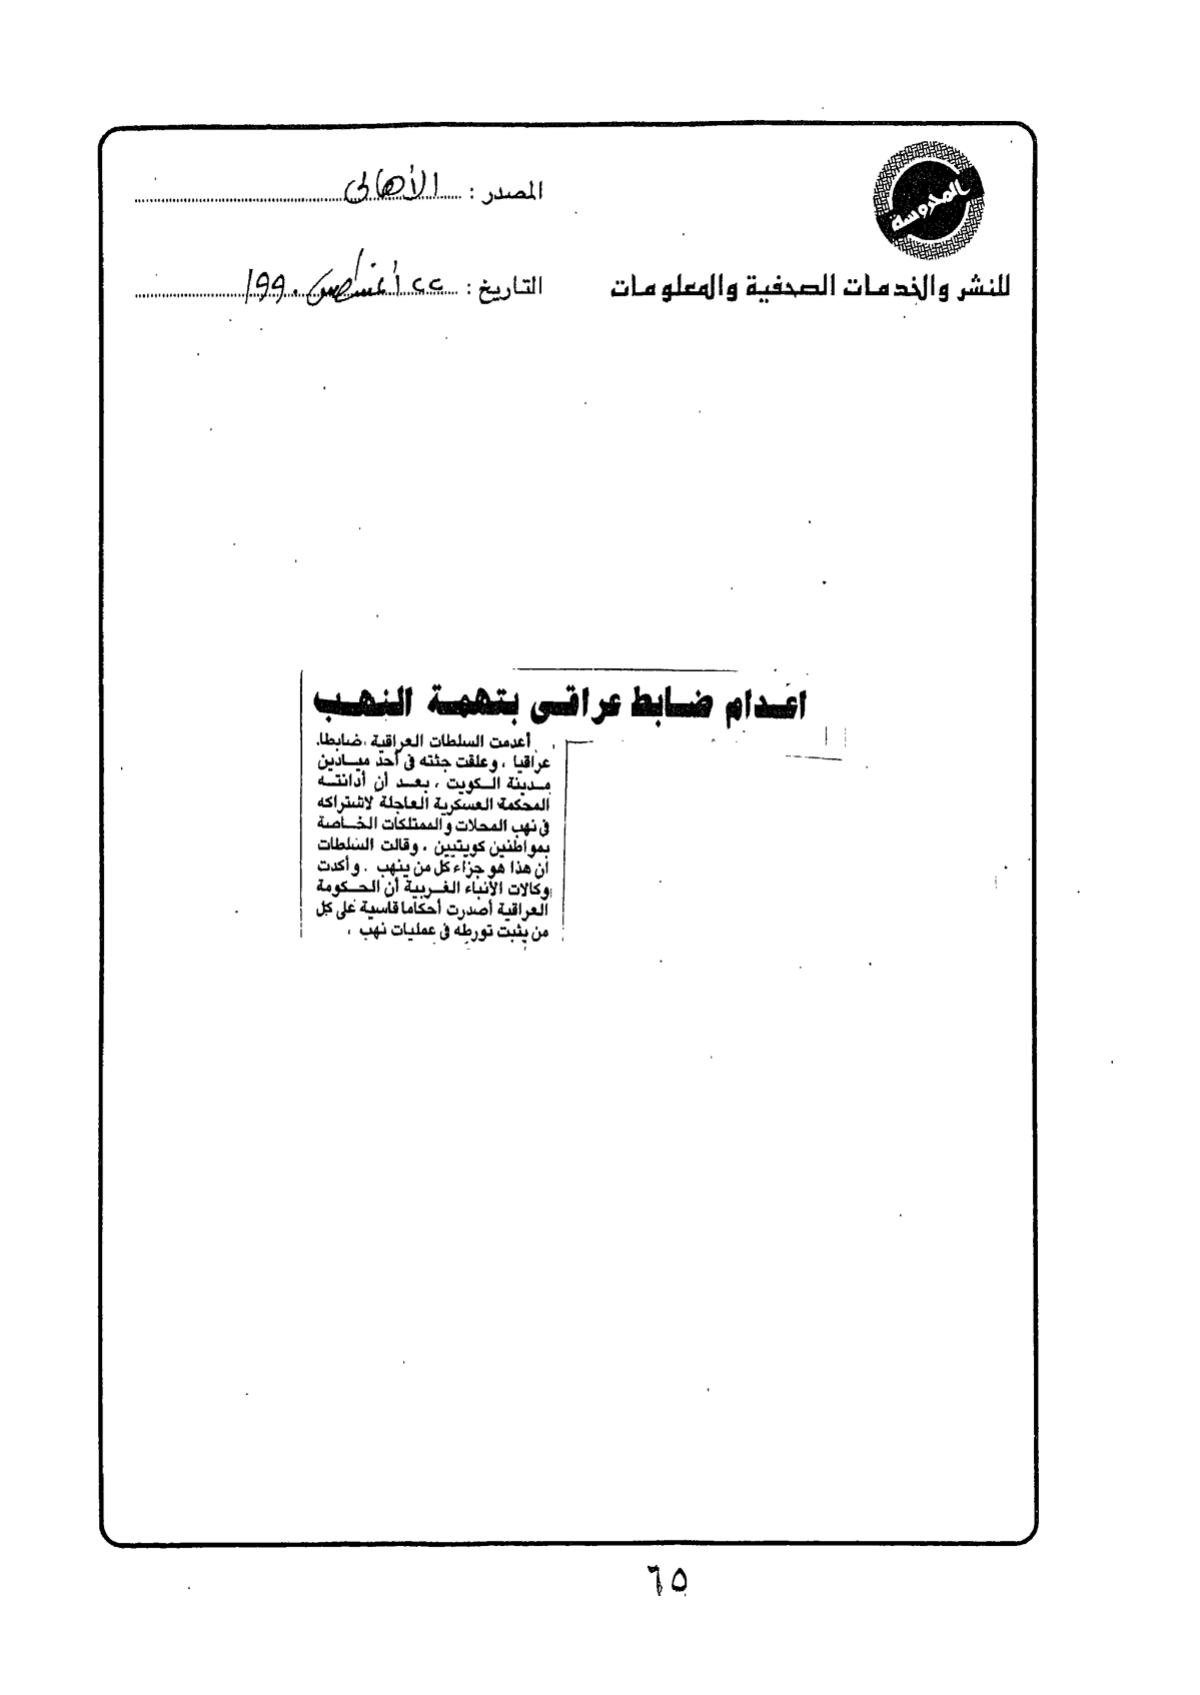 المحروسة
المصدر : الأهالى
للنشر والخدمات الصحفية والمعلومات
التاريخ : ٢٢ أغسطس ١٩٩٠
اعدام ضابط عراقى بتهمة النهب
أعدمت السلطات العراقية ضابطا
عراقيا ، وعلقت جثته فى أحد ميادين
مدينة الكويت ، بعد أن أدانته
المحكمة العسكرية العاجلة لاشتراكه
فى نهب المحلات والممتلكات الخاصة
بمواطنين كويتيين . وقالت السلطات
ان هذا هو جزاء كل من ينهب . وأكدت
وكالات الأنباء الغربية أن الحكومة
العراقية أصدرت أحكاما قاسية على كل
من يثبت تورطه فى عمليات نهب .
٦٥